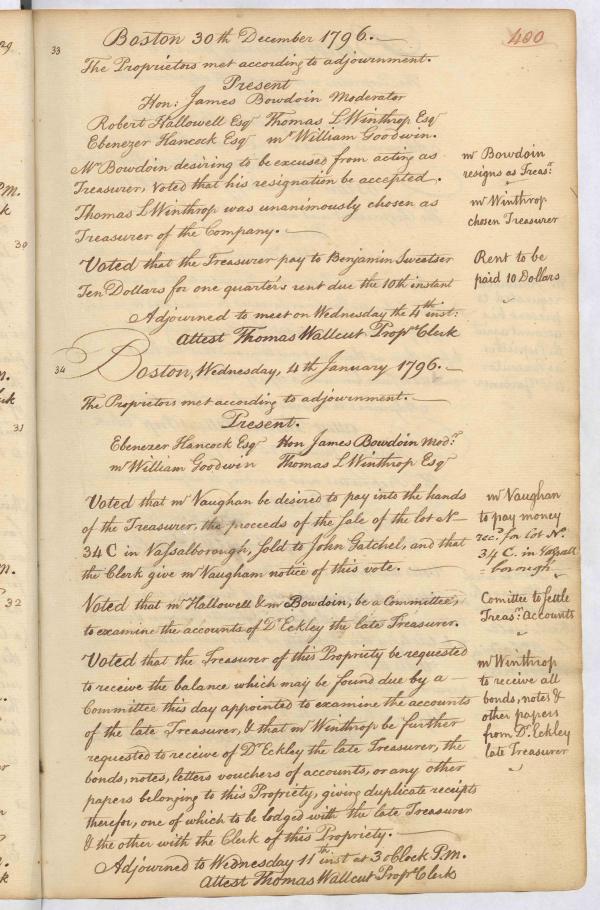 400
33
Boston 30th December 1796.
The Proprietors met according to adjournment.
Present
Hon: James Bowdoin Moderator
Robert Hallowell Esqr Thomas L Winthrop Esqr
Ebenezer Hancock Esqr mr William Goodwin.
Mr Bowdoin desiring to be excused from acting as
Treasurer, Voted that his resignation be accepted.
Thomas L Winthrop was unanimously chosen as
Treasurer of the Company.
mr Bowdoin
resigns as Treasr:
mr Winthrop
chosen Treasurer
30
Voted that the Treasurer pay to Benjamin Sweetser
Ten Dollars for one quarter's rent due the 10th instant
Rent to be
paid 10 Dollars
Adjourned to meet on Wednesday the 4th inst:
Attest Thomas Wallcut Proprs Clerk
34
Boston, Wednesday, 4th January 1796.
The Proprietors met according to adjournment.
31
Present.
Ebenezer Hancock Esqr Hon James Bowdoin Modr:
mr William Goodwin Thomas L Winthrop Esqr
Voted that mr Vaughan be desired to pay into the hands
of the Treasurer, the proceeds of the sale of the lot No
34 C in Vassalborough, sold to John Gatchel, and that
the Clerk give mr Vaugham notice of this vote.
mr Vaughan
to pay money
recd. for lot No.
34 C. in Vassall
=borough
32
Voted that mr Hallowell & mr Bowdoin, be a Committee,
to examine the accounts of Dr Eckley the late Treasurer.
Comittee to settle
Treasrs: Accounts
Voted that the Treasurer of this Propriety be requested
to receive the balance which may be found due by a
Committee this day appointed to examine the accounts
of the late Treasurer, & that mr Winthrop be further
requested to receive of Dr Eckley the late Treasurer, the
bonds, notes, letters vouchers of accounts, or any other
papers belonging to this Propriety, giving duplicate receipts
therefor, one of which to be lodged with the late Treasurer
& the other with the Clerk of this Propriety.
mr Winthrop
to receive all
bonds, notes &
other papers
from Dr. Eckley
late Treasurer
Adjourned to Wednesday 11th inst at 3 oClock P.M.
Attest Thomas Wallcut Proprs Clerk